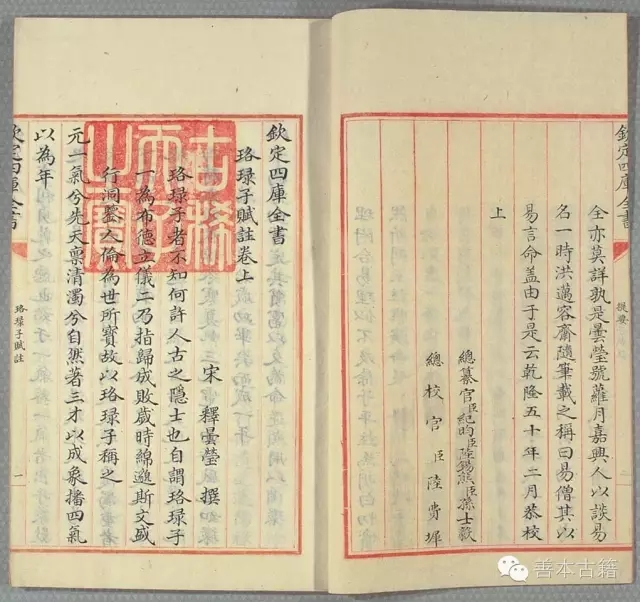 欽定四庫全書
提要
全亦莫詳孰是曇瑩號蘿月嘉興人以談易
名一時洪邁容齋隨筆載之稱曰易僧其以
易言命盖由于是云乾隆五十年二月恭校
上
總纂官臣紀昀臣陸錫熊臣孫士毅
總校官臣陸費墀
欽定四庫全書
珞琭子賦註卷上
宋 釋曇瑩 撰
珞琭子者不知何許人古之隱士也自謂珞琭子
一為布德立儀二乃指歸成敗歲時綿邈斯文盛
行洞鑒人倫為世所寶故以珞琭子稱之
元一氣兮先天稟清濁兮自然著三才以成象播四氣
以為年
古稀
天子
之寶
欽定四庫全書
珞琭子賦註
一
善本古籍